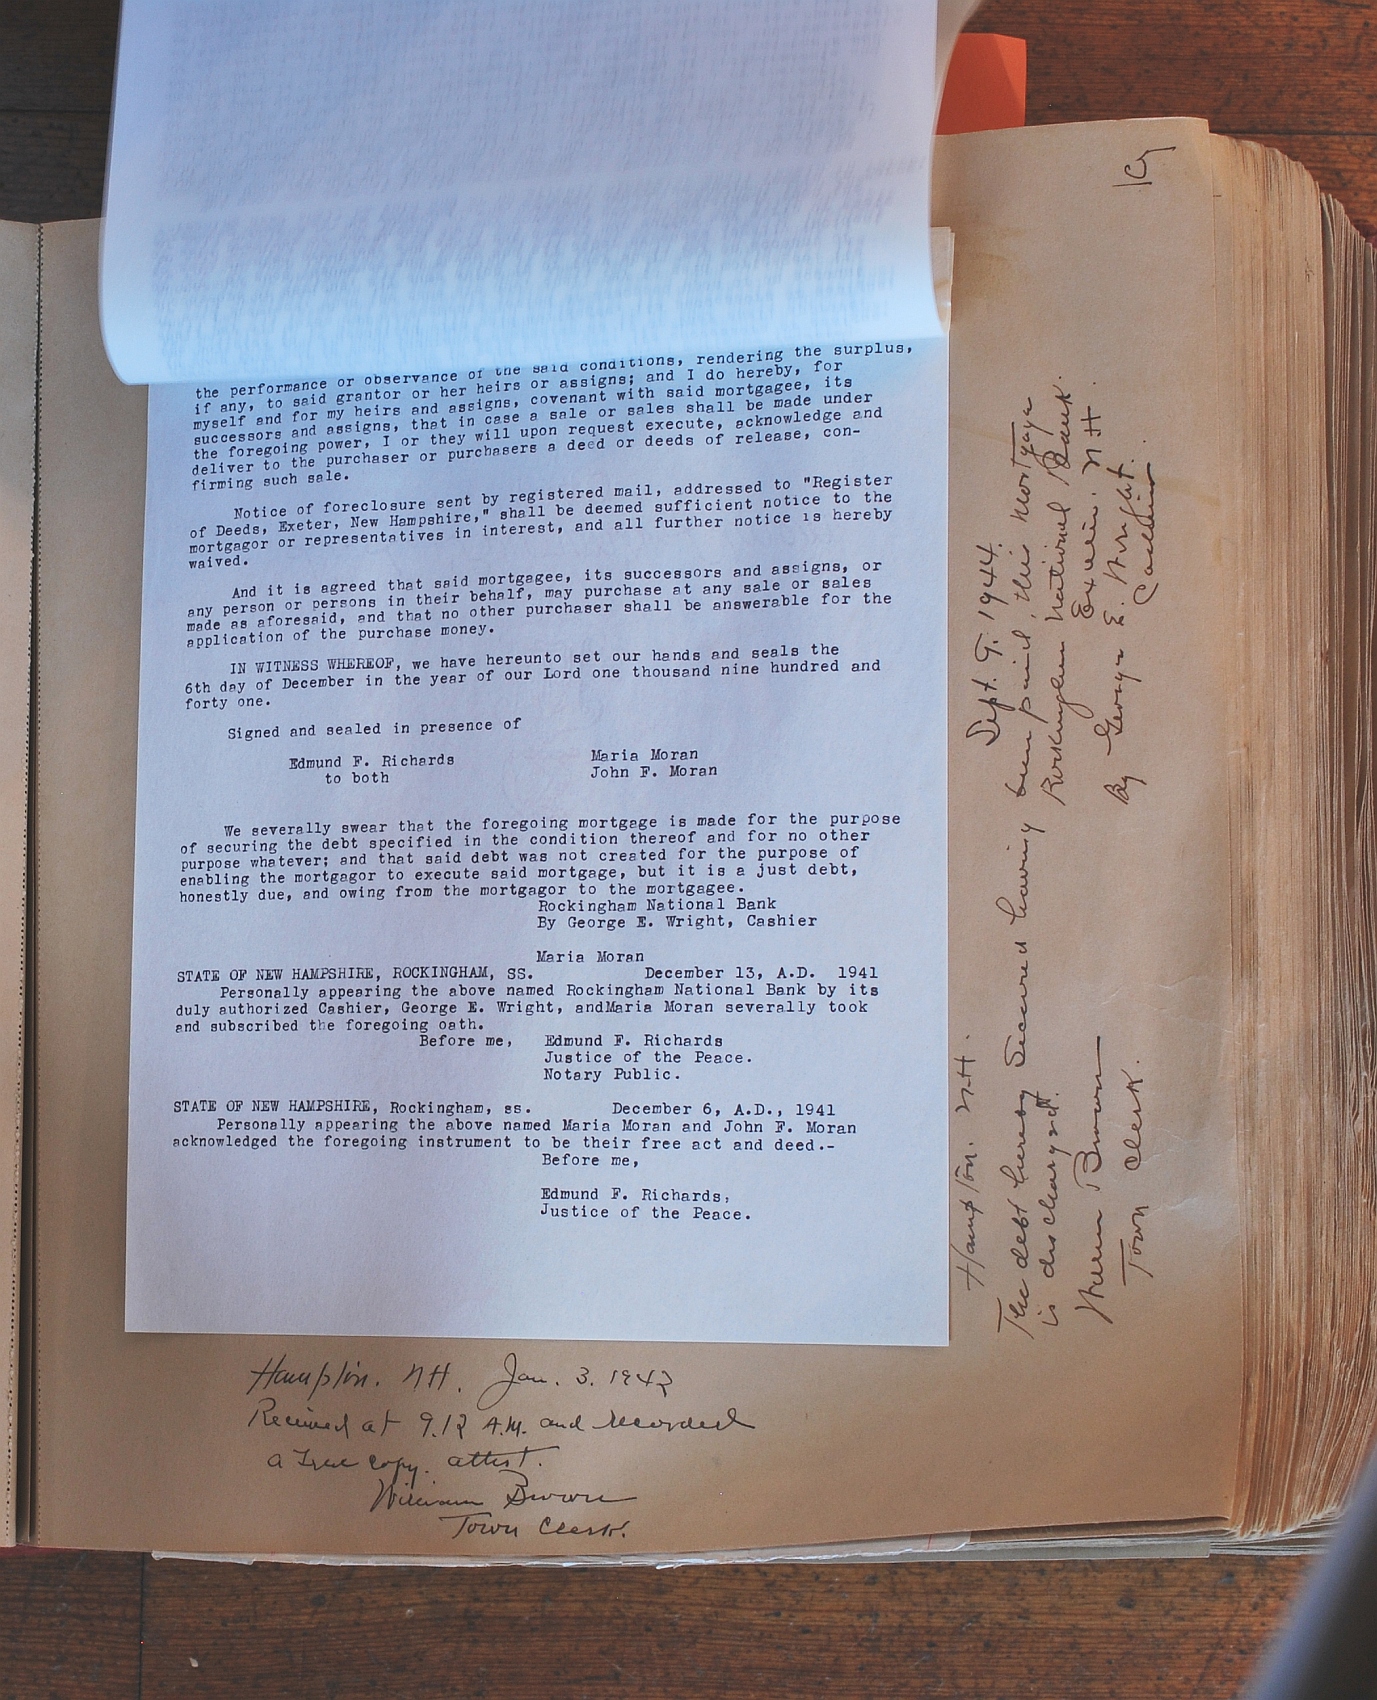 the performance or observance of the said conditions, rendering the surplus,
if any, to said grantor or her heirs or assigns; and I do hereby, for
myself and for my heirs and assigns, covenant with said mortgagee, its
successors and assigns, that in case a sale or sales shall be made under
the foregoing power, I or they will upon request execute, acknowledge and
deliver to the purchaser or purchasers a deed or deeds of release, con-
firming such sale.
Notice of foreclosure sent by registered mail, addressed to "Register
of Deeds, Exeter, New Hampshire," shall be deemed sufficient notice to the
mortgagor or representatives in interest, and all further notice is hereby
waived.
And it is agreed that said mortgagee, its successors and assigns, or
any person or persons in their behalf, may purchase at any sale or sales
made as aforesaid, and that no other purchaser shall be answerable for the
application of the purchase money.
IN WITNESS WHEREOF, we have hereunto set our hands and seals the
6th day of December in the year of our Lord one thousand nine hundred and
forty one.
Signed and sealed in presence of
Edmund F. Richards Maria Moran
to both John F. Moran
We severally swear that the foregoing mortgage is made for the purpose
of securing the debt specified in the condition thereof and for no other
purpose whatever; and that said debt was not created for the purpose of
enabling the mortgagor to execute said mortgage, but it is a just debt,
honestly due, and owing from the mortgagor to the mortgagee.
Rockingham National Bank
By George E. Wright, Cashier
Maria Moran
STATE OF NEW HAMPSHIRE, ROCKINGHAM, SS. December 13, A.D. 1941
Personally appearing the above named Rockingham National Bank by its
duly authorized Cashier, George E. Wright, andMaria Moran severally took
and subscribed the foregoing oath.
Before me, Edmund F. Richards
Justice of the Peace.
Notary Public.
STATE OF NEW HAMPSHIRE, Rockingham, ss. December 6, A.D., 1941
Personally appearing the above named Maria Moran and John F. Moran
acknowledged the foregoing instrument to be their free act and deed.-
Before me,
Edmund F. Richards,
Justice of the Peace.
Hampton. NH. Jan. 3. 1942
Received at 9.12 A.M. and recorded
a true copy. attest.
William Brown
Town Clerk.
Hampton. N.H. Sept. 9. 1944.
The debt hereby secured having been paid, this mortgage
is discharged. Rockingham National Bank.
Exeter. N.H.
William Brown By George E. Wright.
Town Clerk. Cashier